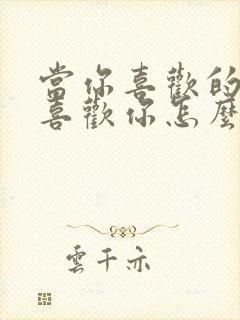 當你喜歡的
喜歡你怎麼
雲千亦